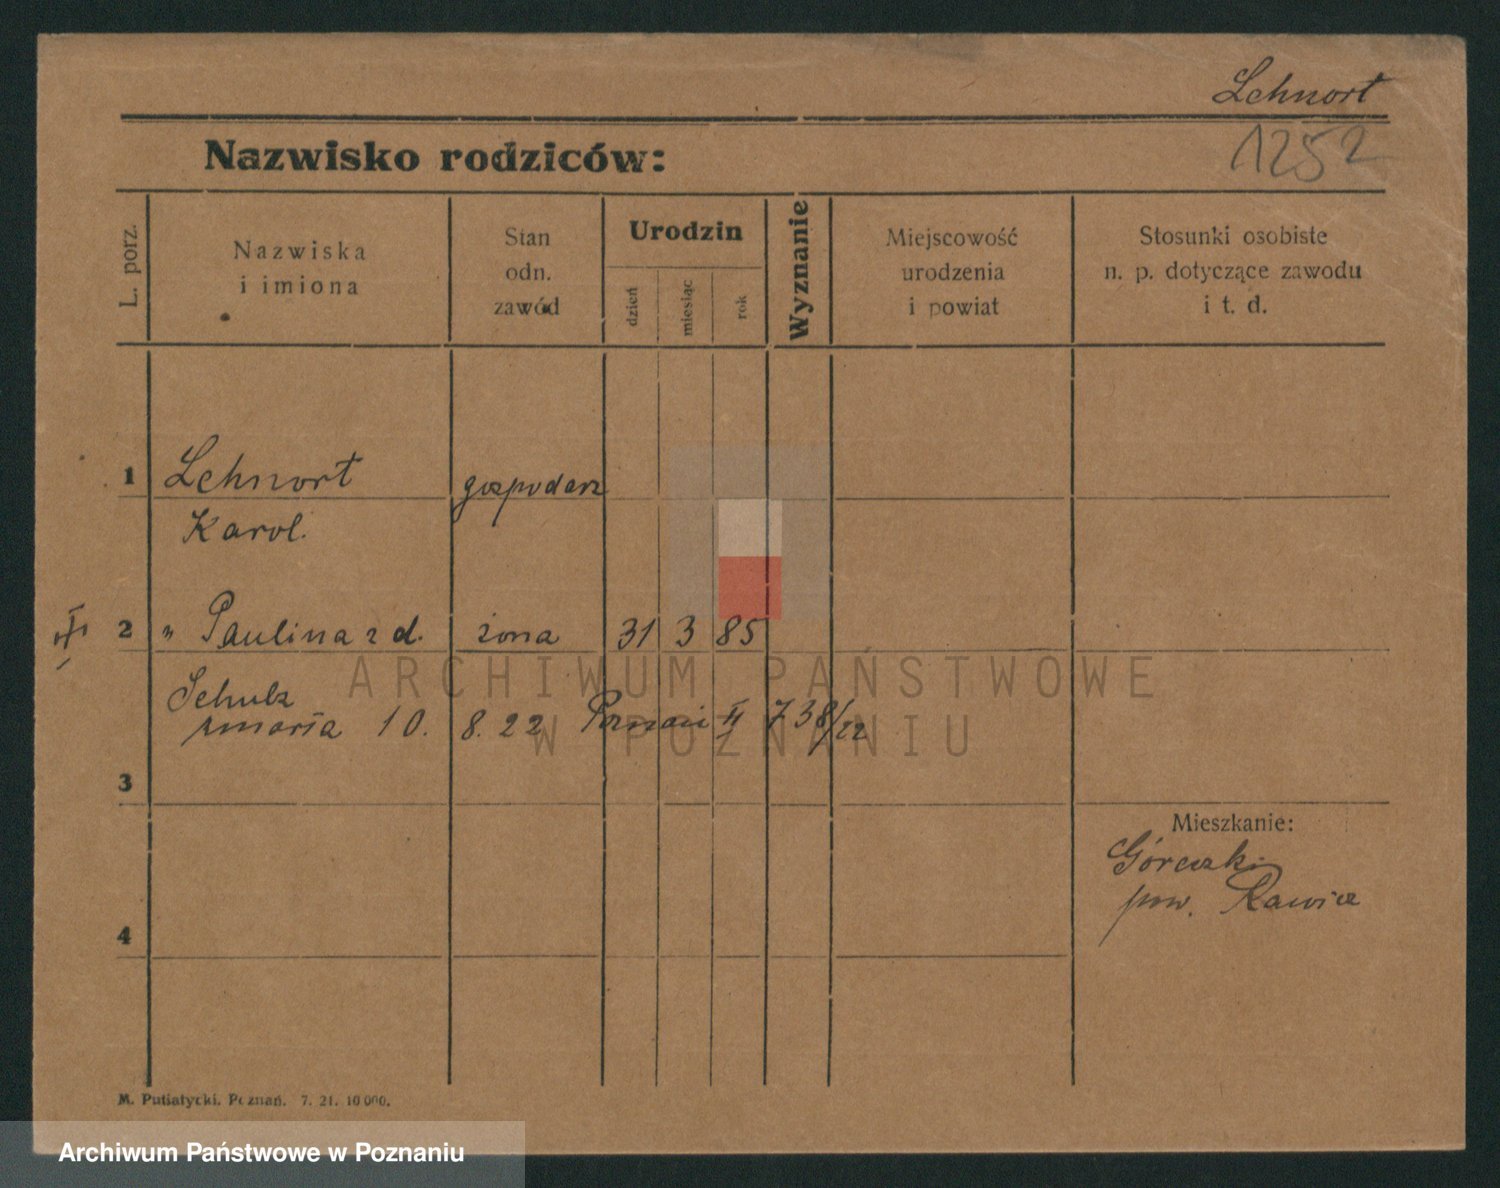 Lehnort
1252
Nazwisko rodziców:
L. porz.
Nazwiska
i imiona
Stan
odn.
zawód
Urodzin
dzień
miesiąc
rok
Wyznanie
Miejscowość
urodzenia
i powiat
Stosunki osobiste
n. p. dotyczące zawodu
i t. d.
1 Lehnort gospodarz
Karol.
2 " Paulina z d. żona 31 3 85
Schulz
zmarła 10. 8. 22 Poznań II 738/22
3
Mieszkanie:
Góreczki
pow. Rawicz
4
M. Putiatycki. Poznań. 7. 21. 10 000.
ARCHIWUM PAŃSTWOWE
W POZNANIU
Archiwum Państwowe w Poznaniu